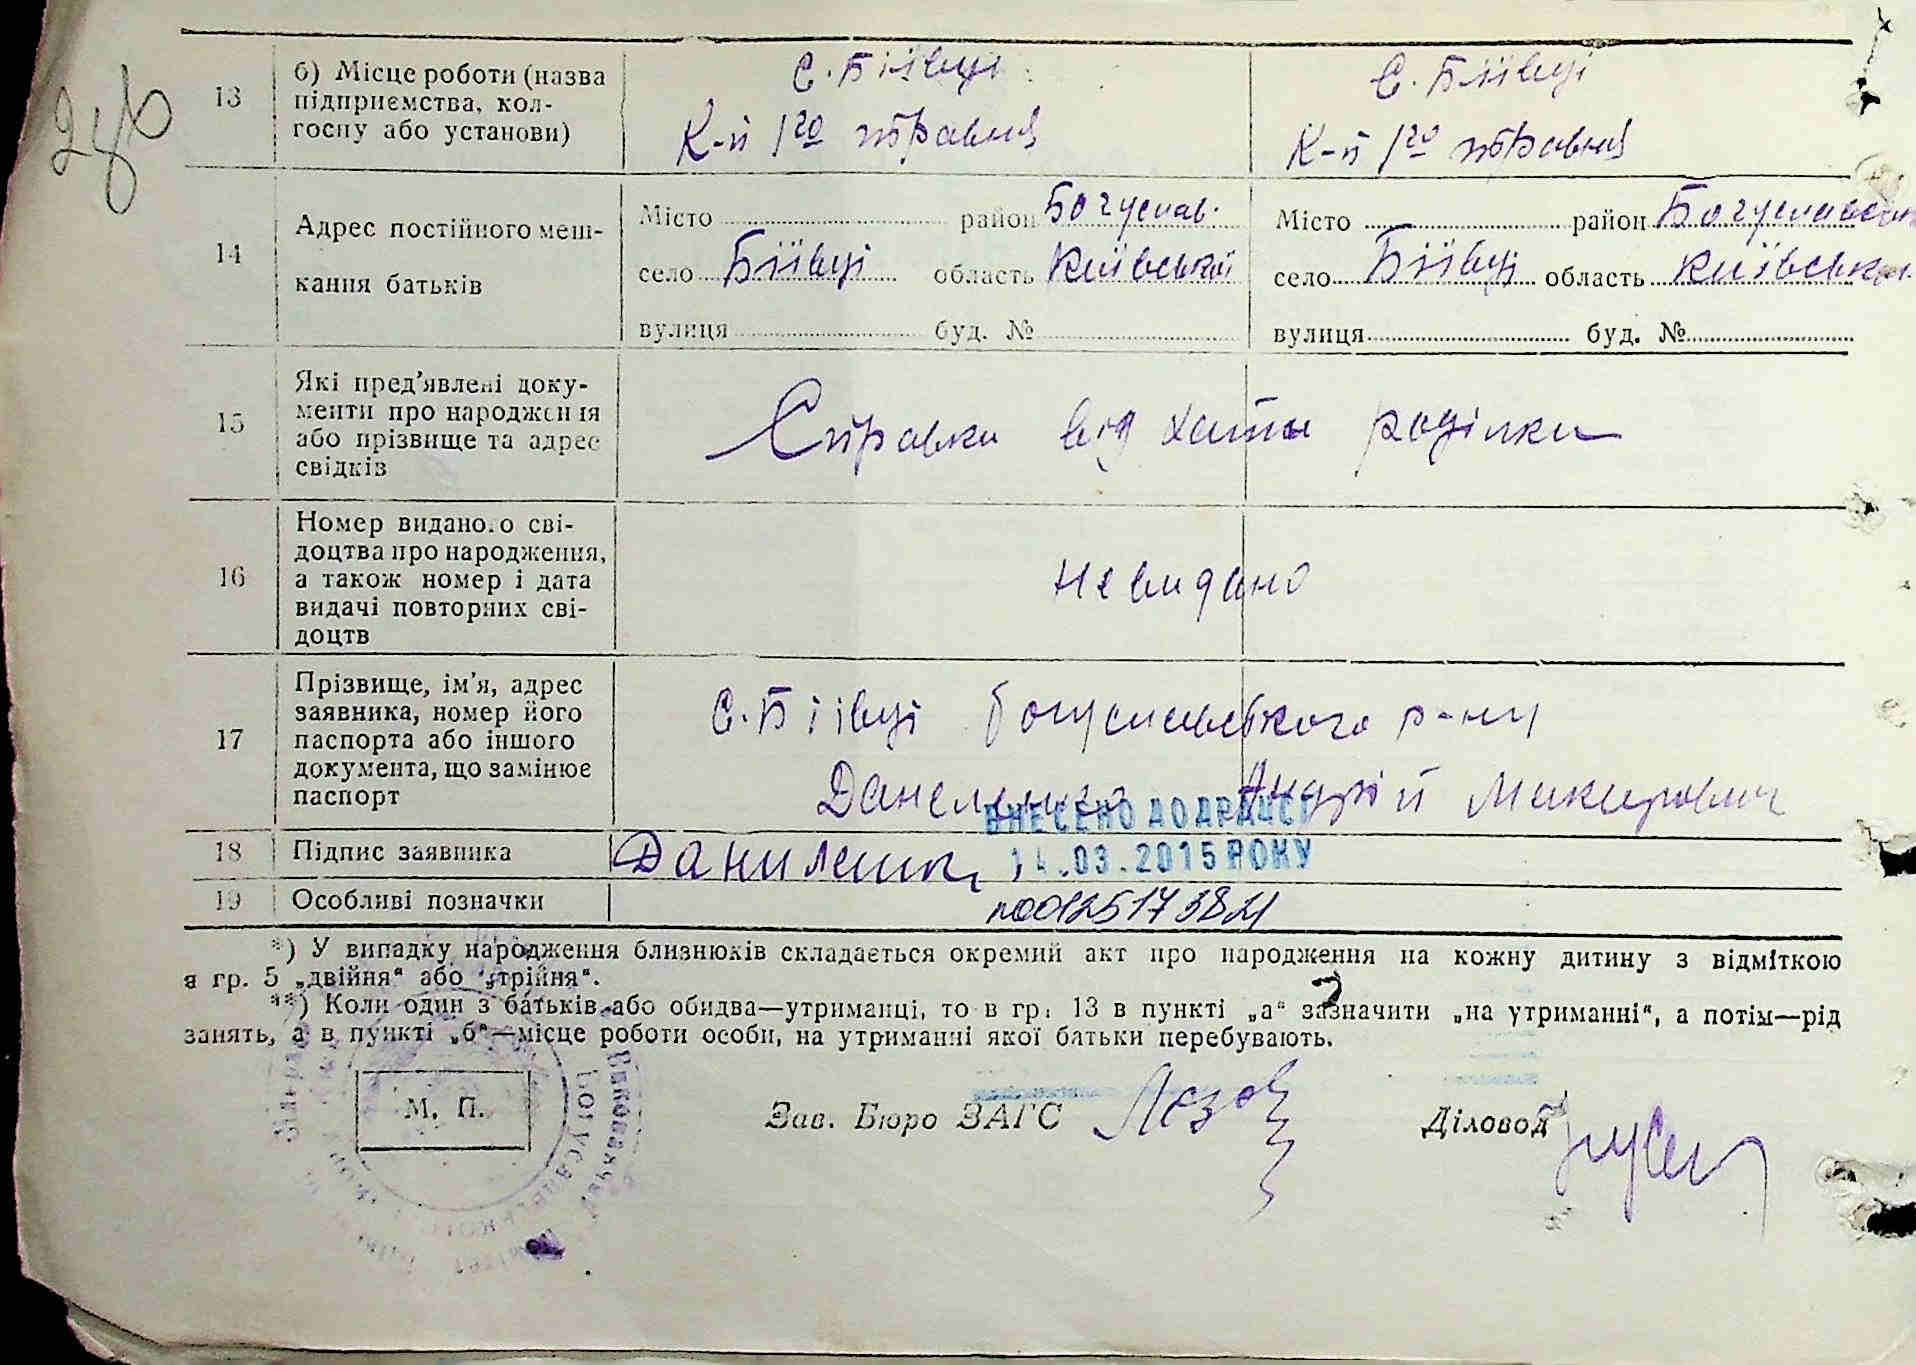 13
б) Місце роботи (назва
підприємства, кол-
госпу або установи)
с. Біївці
К-п 1го травня
С. Біївці
К-п 1го травня
14
Адрес постійного меш-
кання батьків
Місто район Богуслав.
село Біївці область Київської
вулиця буд. №
Місто район Богуславськ
село Біївці область Київськ
вулиця буд. №
15
Які пред'явлені доку-
менти про народження
або прізвище та адрес
свідків
Справки від хати роділки
16
Номер виданого сві-
доцтва про народження,
а також номер і дата
видачі повторних сві-
доцтв
невидано
17
Прізвище, ім'я, адрес
заявника, номер його
паспорта або іншого
документа, що замінює
паспорт
с. Біївці богуславського р-ну
Даниленко Андрій
ВНЕСЕНО ДО ДРАЦСГ
14.03.2015 РОКУ
18
Підпис заявника
Даниленк
19
Особливі позначки
*) У випадку народження близнюків складається окремий акт про народження на кожну дитину з відміткою
в гр. 5 „двійня“ або „трійня“.
**) Коли один з батьків або обидва—утриманці, то в гр. 13 в пункті „а“ зазначити „на утриманні“, а потім—рід
занять, а в пункті „б“—місце роботи особи, на утриманні якої батьки перебувають.
М. П.
Зав. Бюро ЗАГС
Діловод